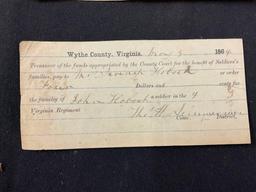 Wythe County, Virginia, Nov 3 1864.
Treasurer of the funds appropriated by the County Court for the benefit of Soldier's
families, pay to Mrs. Hobock or order
Four Dollars and cents for
the family of John Hobock a soldier in the 4
Virginia Regiment Tho. H.
Com. District